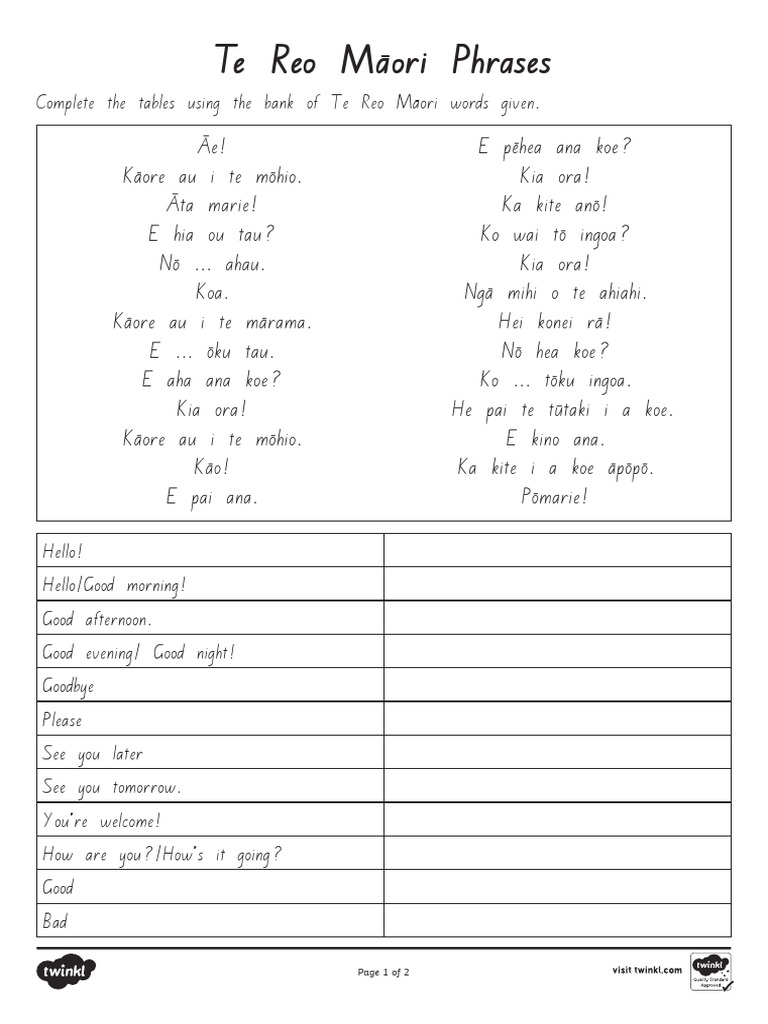 Te Reo Māori Phrases
Complete the tables using the bank of Te Reo Māori words given.
Āe!
Kāore au i te mōhio.
Āta marie!
E hia ou tau?
Nō ... ahau.
Koa.
Kāore au i te mārama.
E ... ōku tau.
E aha ana koe?
Kia ora!
Kāore au i te mōhio.
Kāo!
E pai ana.
E pēhea ana koe?
Kia ora!
Ka kite anō!
Ko wai tō ingoa?
Kia ora!
Ngā mihi o te ahiahi.
Hei konei rā!
Nō hea koe?
Ko ... tōku ingoa.
He pai te tūtaki i a koe.
E kino ana.
Ka kite i a koe āpōpō.
Pōmarie!
Hello!
Hello/Good morning!
Good afternoon.
Good evening/ Good night!
Goodbye
Please
See you later
See you tomorrow.
You're welcome!
How are you?/How's it going?
Good
Bad
twinkl
Page 1 of 2
visit twinkl.com
twinkl
Quality Standard
Approved